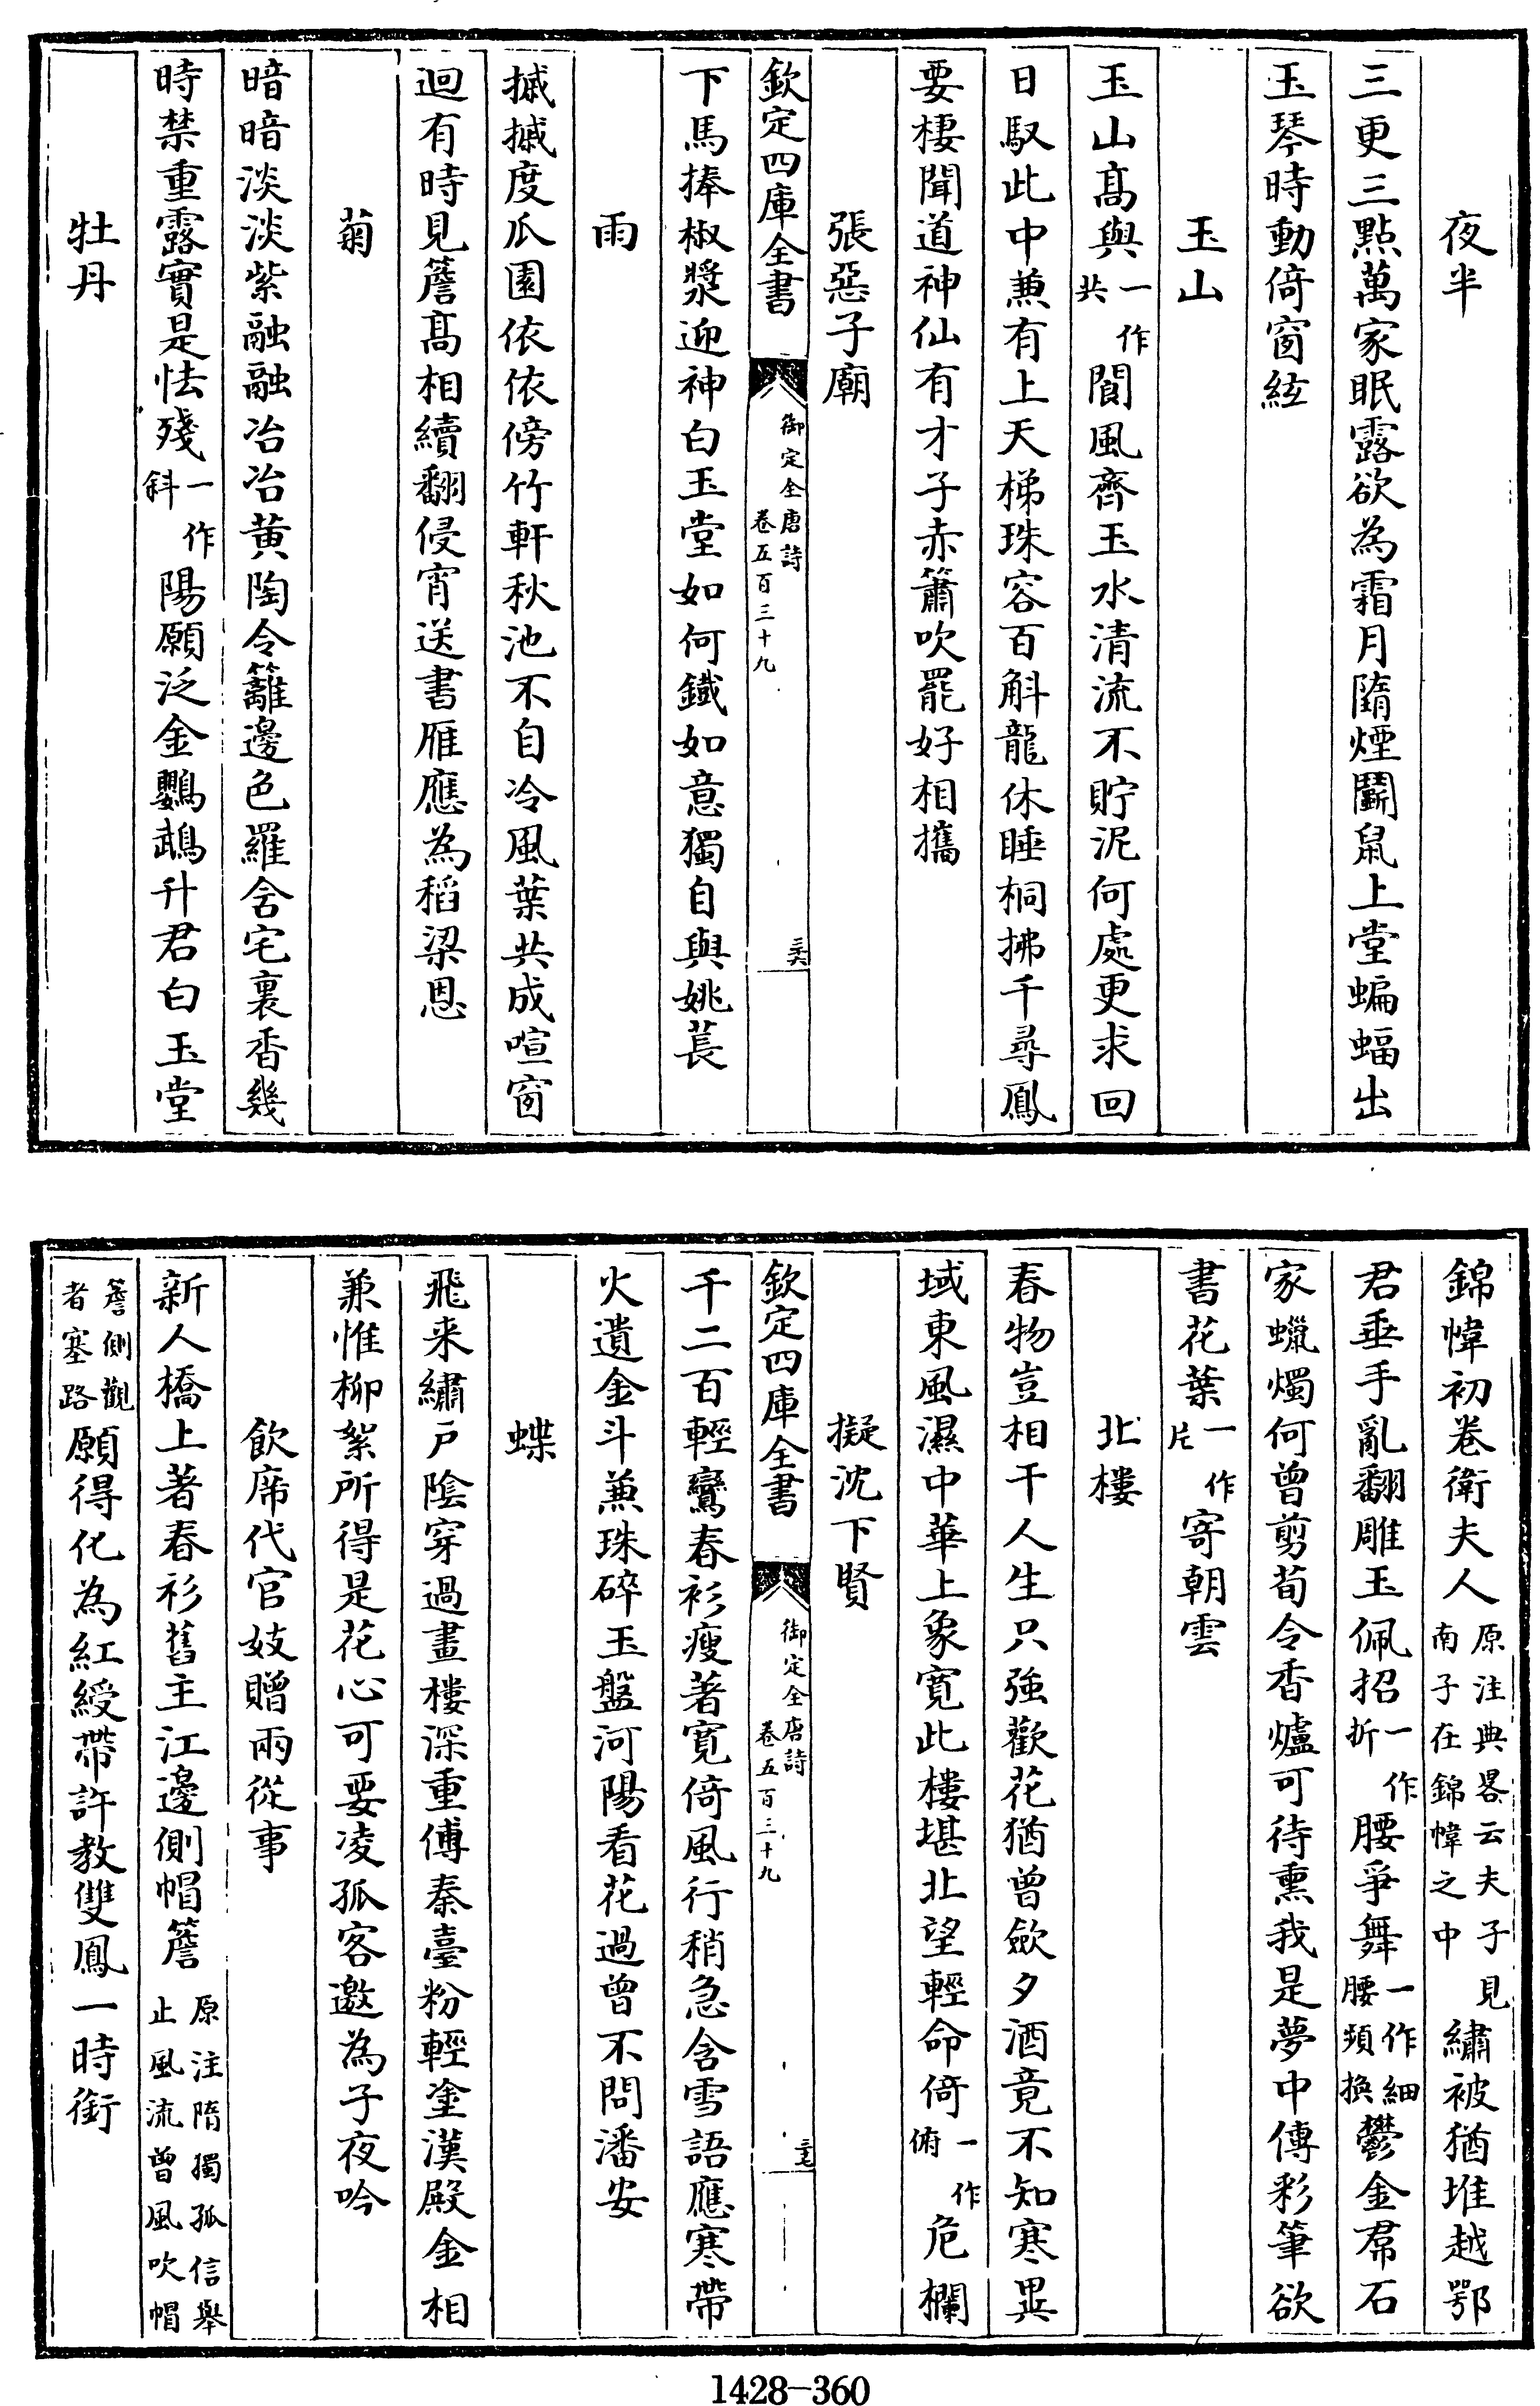 夜半
三更三點萬家眠露欲為霜月隋煙鬭鼠上堂蝙蝠出
玉琴時動倚窗絃
玉山
玉山髙與一作共閬風齊玉水清流不貯泥何處更求回
日馭此中兼有上天梯珠容百斛龍休睡桐拂千尋鳳
要棲聞道神仙有才子赤簫吹罷好相攜
張惡子廟
欽定四庫全書
御定全唐詩
卷五百三十九
三六
下馬捧椒漿迎神白玉堂如何鐵如意獨自與姚萇
雨
摵摵度瓜園依依傍竹軒秋池不自冷風葉共成喧窗
迥有時見簷髙相續翻侵宵送書雁應為稻梁恩
菊
暗暗淡淡紫融融冶冶黄陶令籬邊色羅含宅裏香幾
時禁重露實是怯殘一作斜陽願泛金鸚鵡升君白玉堂
牡丹
錦幃初卷衛夫人原注典畧云夫子見南子在錦幃之中繡被猶堆越鄂
君垂手亂翻雕玉佩招一作折腰爭舞一作細腰頻換鬱金帬石
家蠟燭何曾剪荀令香爐可待熏我是夢中傳彩筆欲
書花葉一作片寄朝雲
北樓
春物豈相干人生只強歡花猶曾斂夕酒竟不知寒異
域東風濕中華上象寛此樓堪北望輕命倚一作俯危欄
擬沈下賢
欽定四庫全書
御定全唐詩
卷五百三十九
三七
千二百輕鸞春衫瘦著寛倚風行稍急含雪語應寒帶
火遺金斗兼珠碎玉盤河陽看花過曾不問潘安
蝶
飛来繡戶陰穿過畫樓深重傅秦臺粉輕塗漢殿金相
兼惟柳絮所得是花心可要凌孤客邀為子夜吟
飲席代官妓贈兩從事
新人橋上著春衫舊主江邊側帽簷原注隋獨孤信舉止風流曾風吹帽
簷側觀者塞路願得化為紅綬帶許教雙鳳一時銜
1428-360